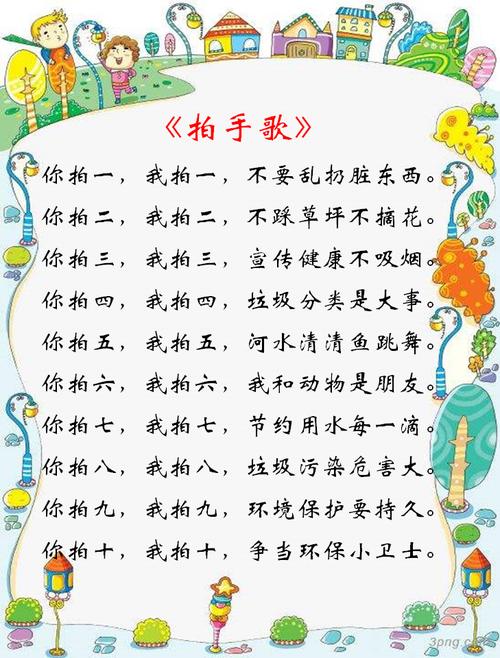 《拍手歌》
你拍一，我拍一，不要乱扔脏东西。
你拍二，我拍二，不踩草坪不摘花。
你拍三，我拍三，宣传健康不吸烟。
你拍四，我拍四，垃圾分类是大事。
你拍五，我拍五，河水清清鱼跳舞。
你拍六，我拍六，我和动物是朋友。
你拍七，我拍七，节约用水每一滴。
你拍八，我拍八，垃圾污染危害大。
你拍九，我拍九，环境保护要持久。
你拍十，我拍十，争当环保小卫士。
3png.com